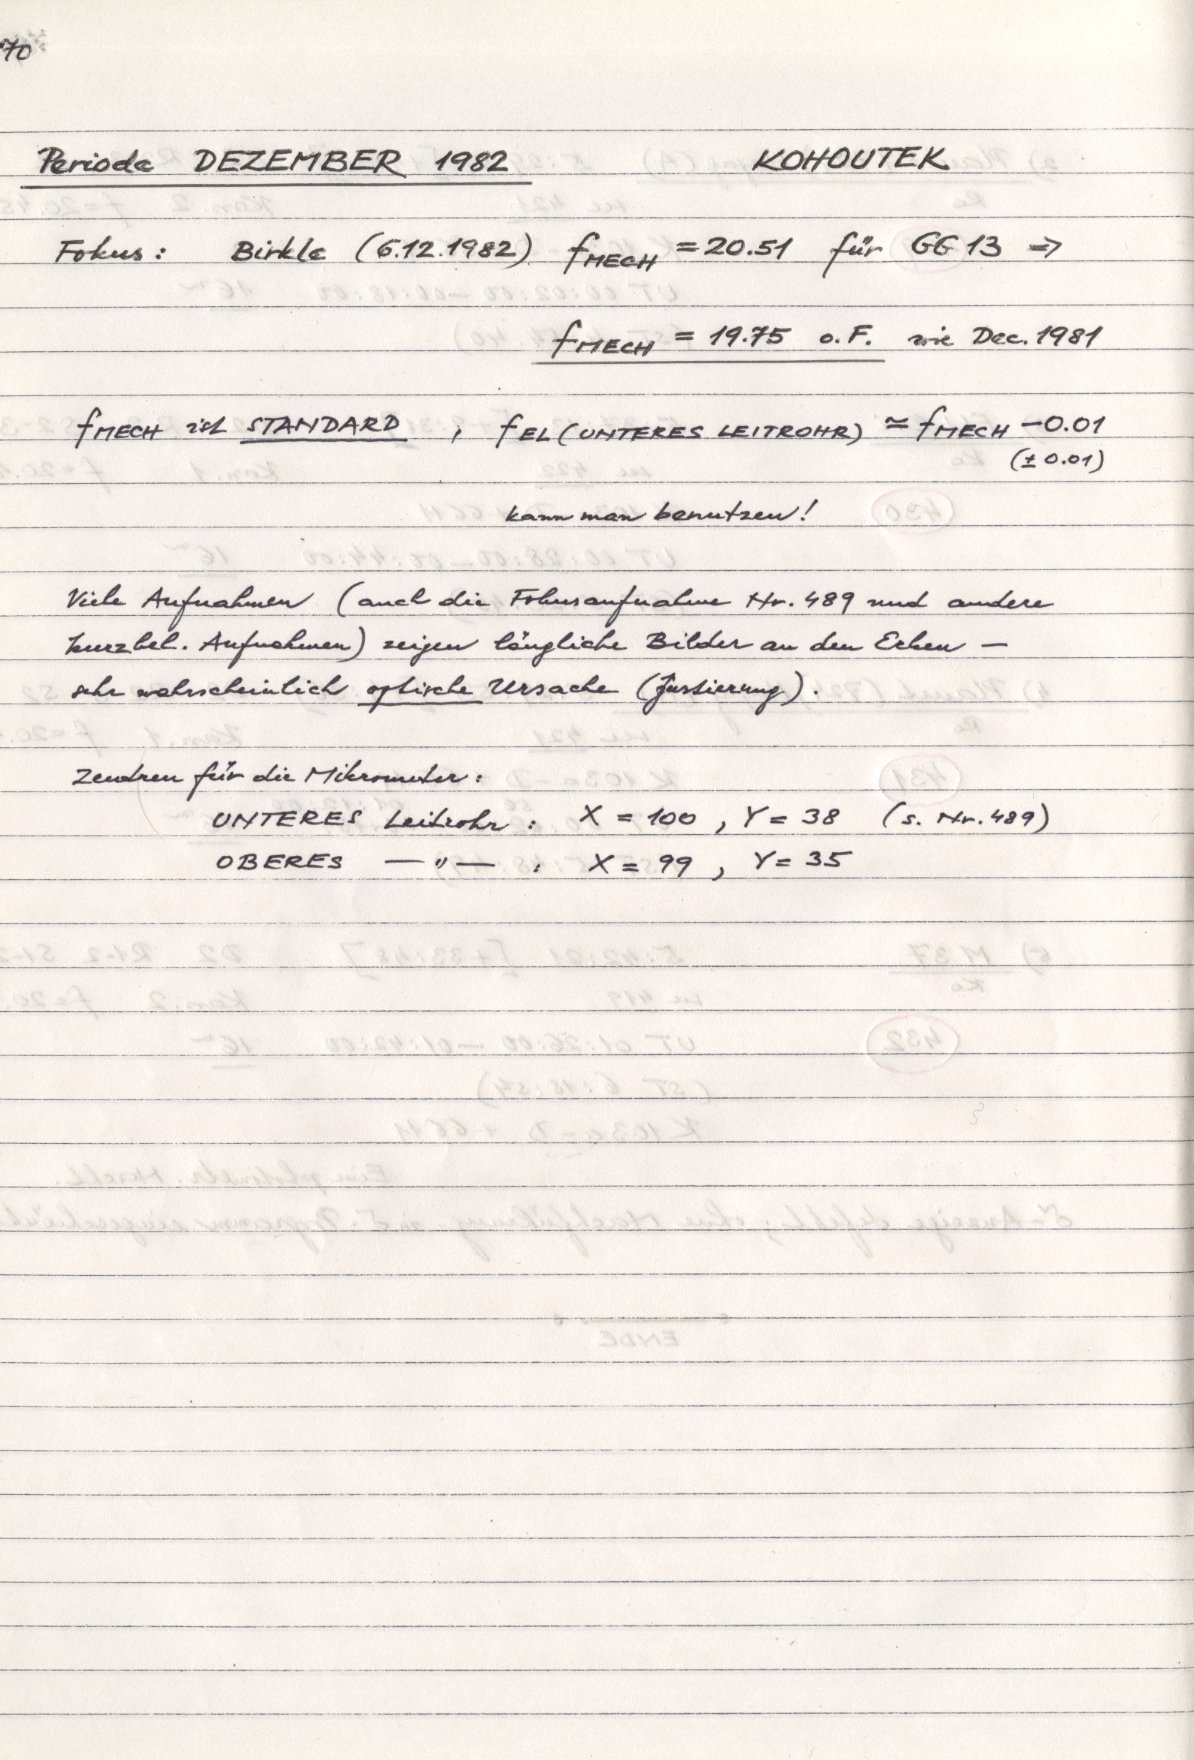 70
Periode DEZEMBER 1982 KOHOUTEK
Fokus: Birkle (6.12.1982) fMECH = 20.51 für GG 13 ⇒
fMECH = 19.75 o.F. wie Dec. 1981
fMECH ist STANDARD , fEL (UNTERES LEITROHR) ≃ fMECH − 0.01
(± 0.01)
kann man benutzen!
Viele Aufnahmen (auch die Fokusaufnahme Nr. 489 und andere
kurzbel. Aufnahmen) zeigen längliche Bilder an den Ecken —
sehr wahrscheinlich optische Ursache (Justierung).
Zentren für die Mikrometer:
UNTERES Leitrohr: X = 100 , Y = 38 (s. Nr. 489)
OBERES — " — : X = 99 , Y = 35